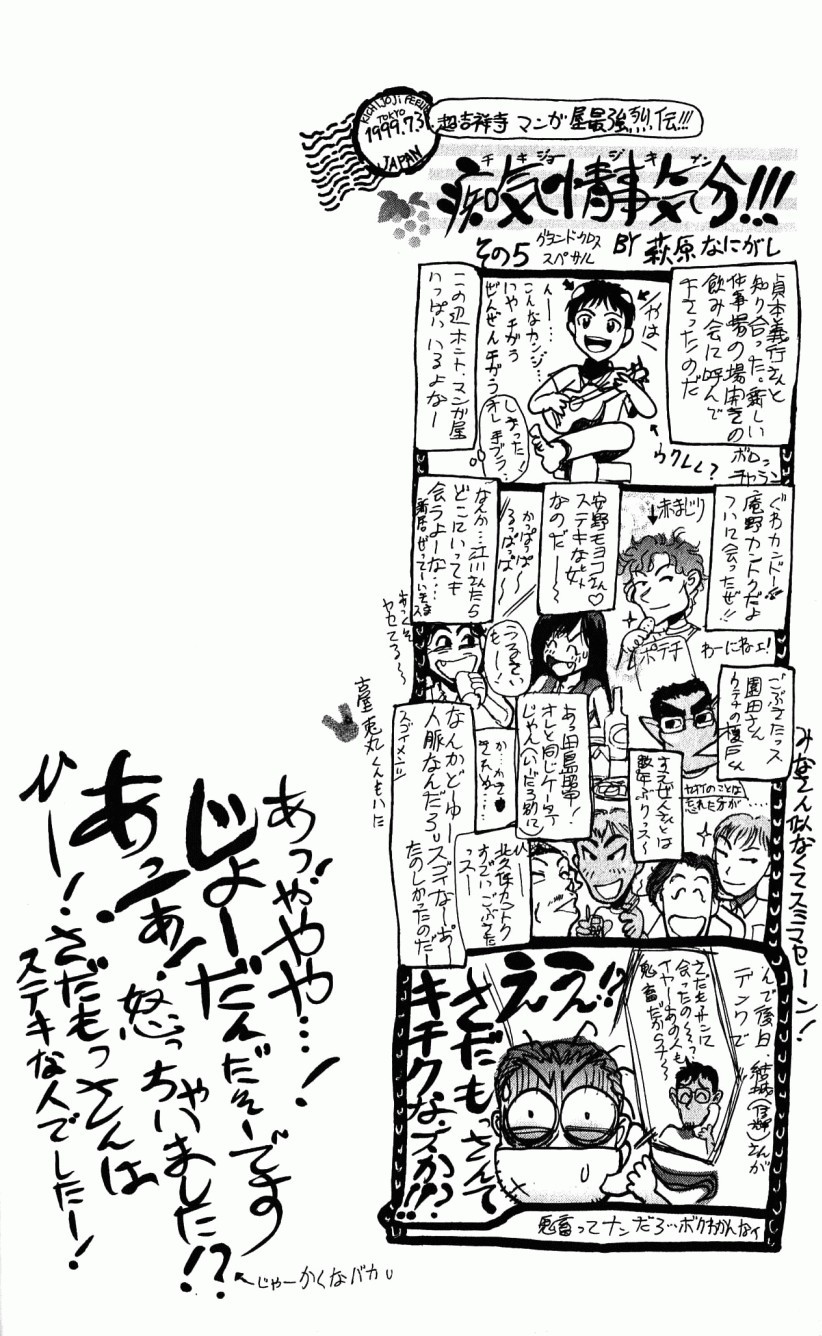 KICHIJOJI
TOKYO
1999.7.31
JAPAN
超吉祥寺 マンガ屋最強烈伝!!!
チキジョージキブン
痴気情事気分!!!
その5
グランドクロス
スペサル
BY 萩原なにがし
貞本義行さんと
知り合った。新しい
仕事場の場開きの
飲み会に呼んで
下さったのだ
ガはハ
んー……
こんなカンジ…
いやチがう
ぜんぜんチがう
しまった!
オレ手ブラ…
ウクレレ?
ポロン
チャラン
この辺ホント、マンガ屋
いっぱいいるよなー
ぐわカンドー!!
庵野カントクだよ
ついに会ったぜ!!
↓赤まじり
ポテチ
わーにねェ!
安野モヨコさん♡
ステキな女
なのだ——〜
かっぱっぱ〜
るっぱっぱ〜
なんか…泣川さんたら
どこにいっても
会うよーな…
うるさい
も〜!
ヤセてる〜
古屋兎丸くんもいた
ごぶさたっス
園田さん
すえぜんさんとは
数年ぶりクス〜
忘れた方が……
あっ田島昭宇!
オレと同じケータイ
じゃん(いんどう別に)
か…かき
きため…
北久保カントク
すごいごぶさた
っス—
なんかどゆー
人脈なんだろ
スゴイメンツ
スゴイなーあー
たのしかったのだー
みなさん似なくてスミマセーン!
んで後日、結城(信輝)さんが
デンワで
さだもサンに
会ったのくっ
イヤーあの人も
鬼畜だからナ〜
ええ!?
さだもっさんて
キチクなズか!!?
鬼畜ってナンだろ…ボクわかんなィ
あっややや…!
じょーだんだそーですの
あっあ!怒っちゃいました!?
ひー!さだもっさんは
ステキな人でしたー!
←じゃーかくなバカ